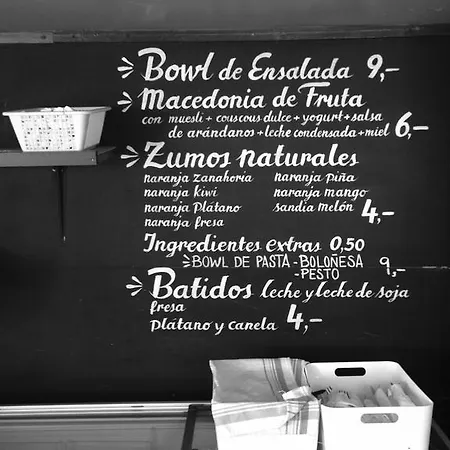 Bowl de Ensalada 9,–
Macedonia de Fruta
con muesli + couscous dulce + yogurt + salsa
de arándanos + leche condensada + miel 6,–
Zumos naturales
naranja zanahoria naranja piña
naranja kiwi naranja mango
naranja Plátano sandia melón 4,–
naranja fresa
Ingredientes extras 0,50
BOWL DE PASTA - BOLOÑESA 9,–
- PESTO
Batidos leche y leche de soja
fresa
Plátano y canela 4,–